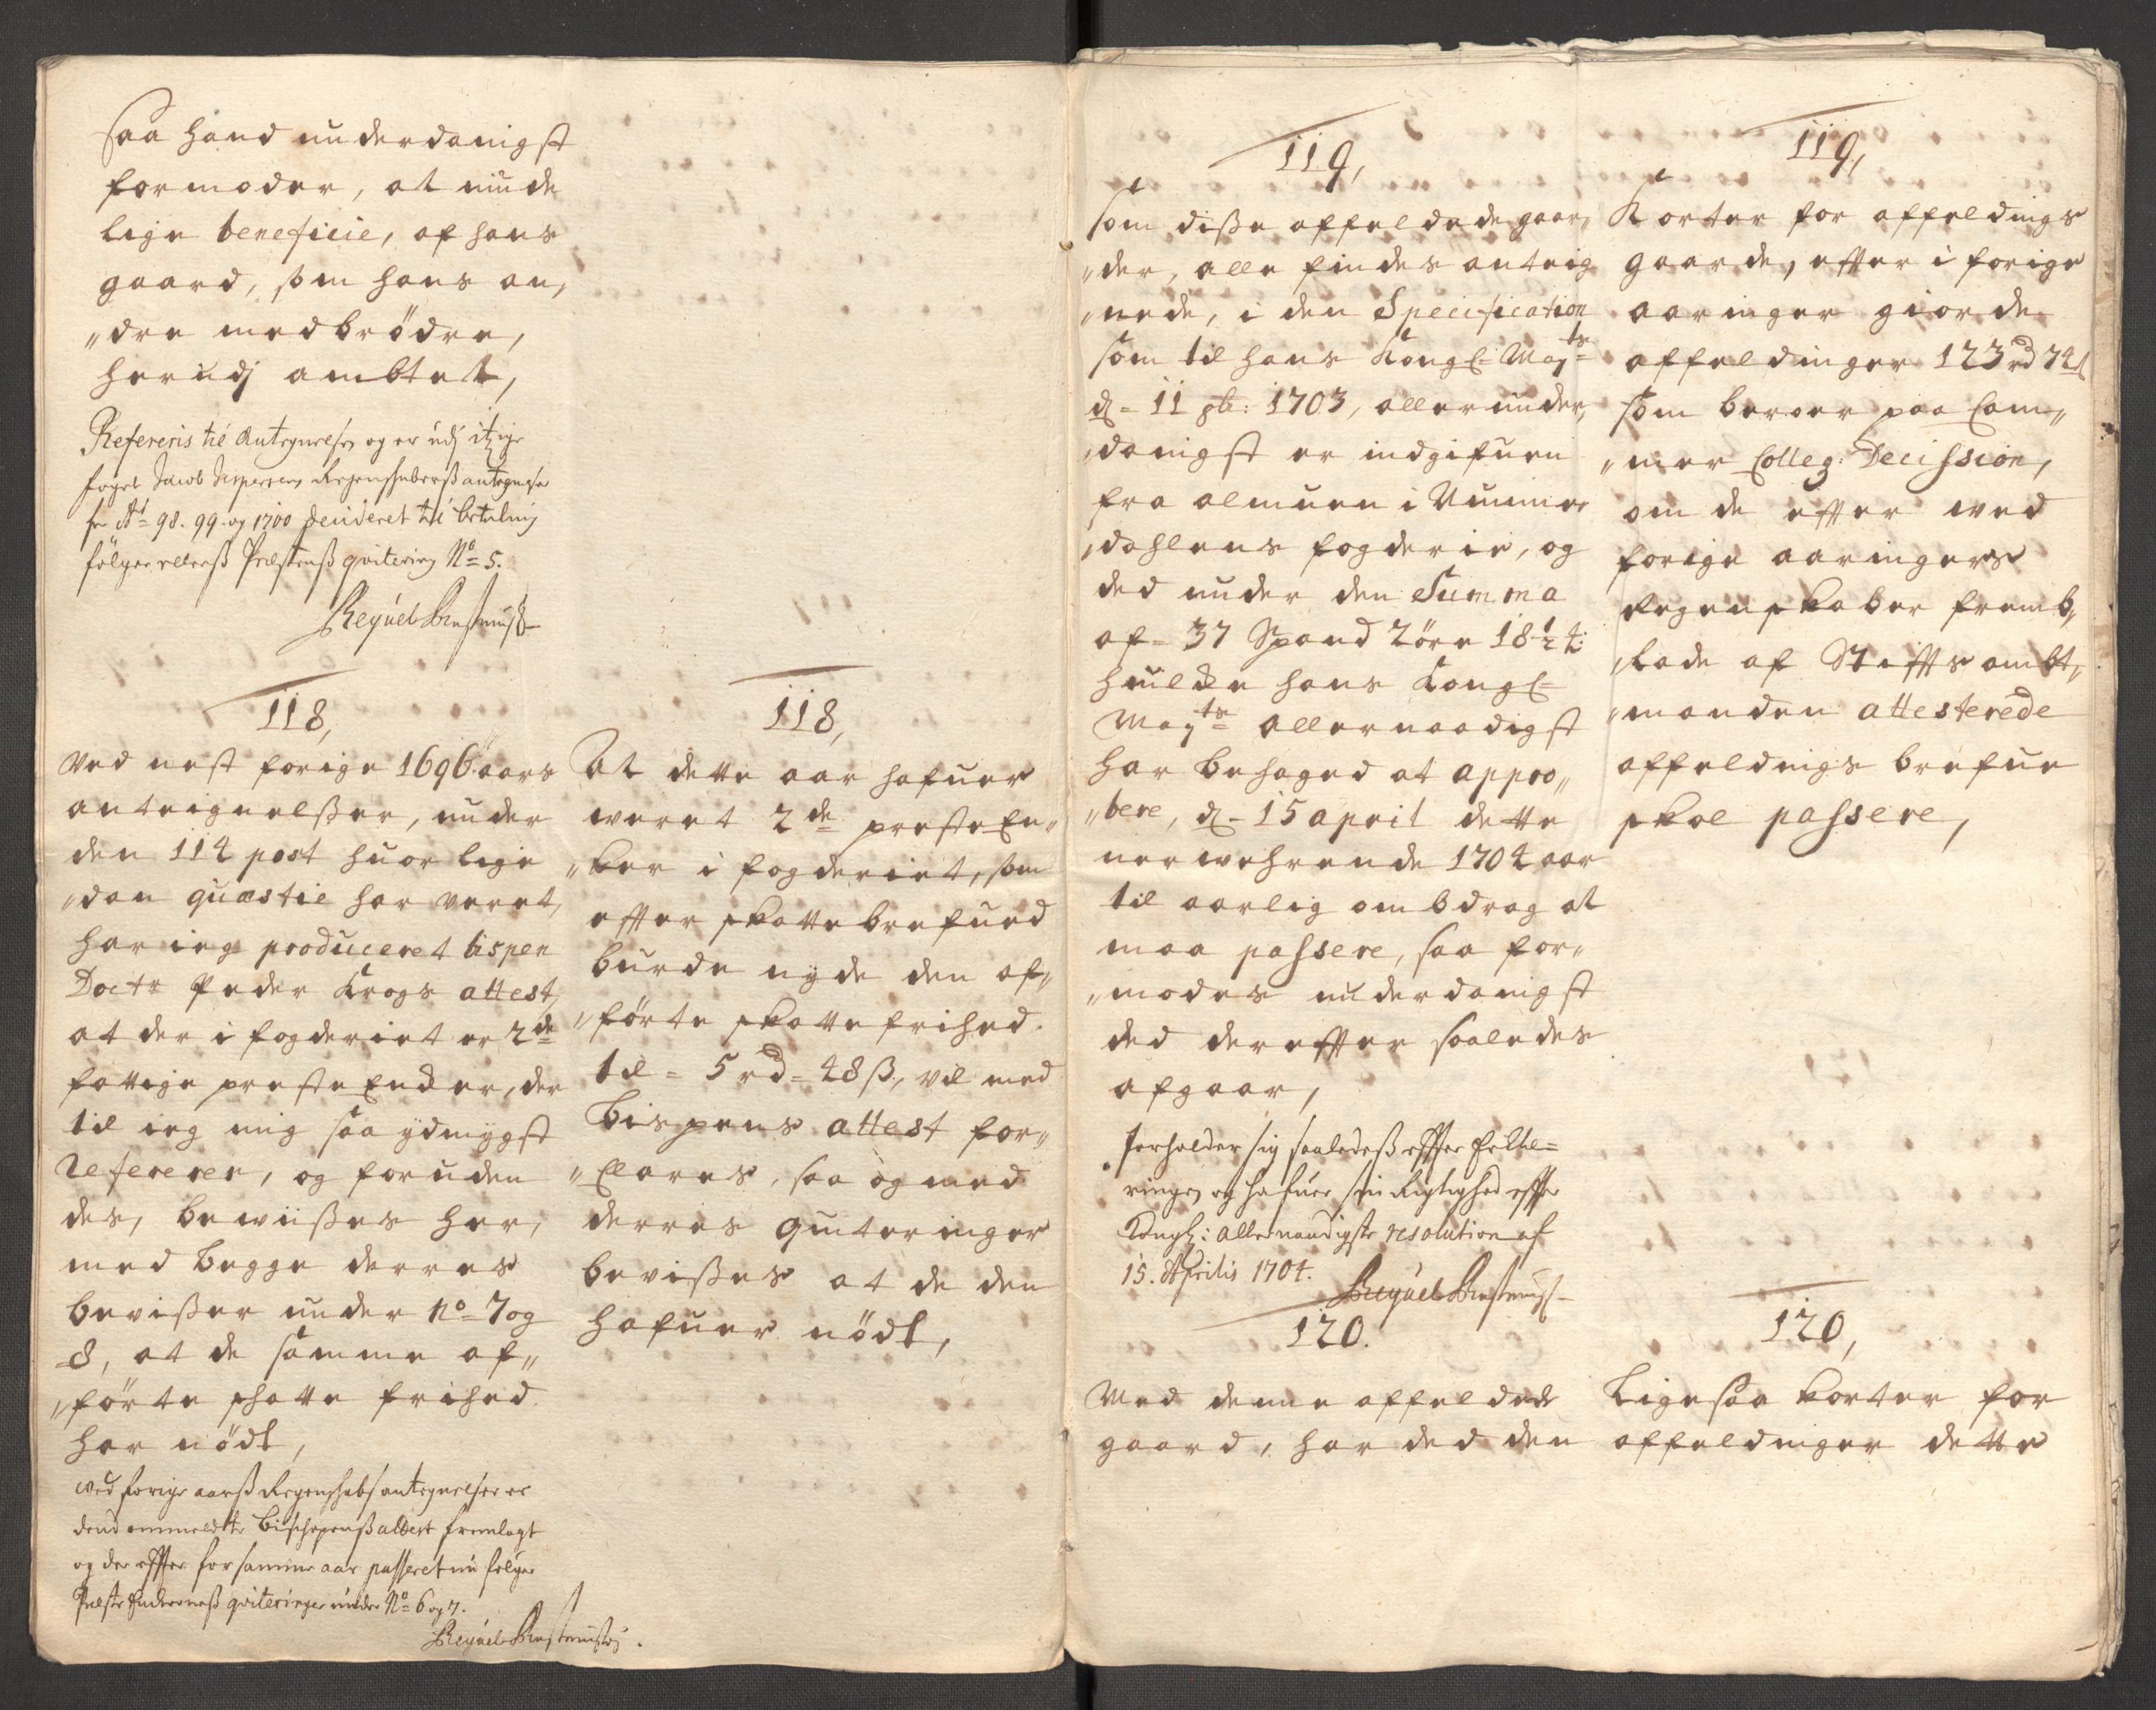 Saa hand underdanigst
formoder, at niude
lige beneficie, af hans
gaard, som hans an,
„dre medbrödre,
herudj ambtet,
Refereris til Antegnelsen og er udj itzige
foget Jacob Jespersens Regenskaberß antegnelse
for Ao 98. 99. og 1700 Decideret til betaling
følger ellerß Prestenß qvitering No= 5.
118,
Ved nest forige 1696 aars
anteignelßer, under
den 114 post huor lige
„dan quæstie har veret,
har ieg produceret bispen
Doctr Peder Krogs attest,
at der i fogderiet er 2de
fattige preste Encker, der
til ieg mig saa ydmygst
Refererer, og foruden
des, bewiißes her,
med begge derres
bevißer under No= 7 og
8, at de samme af„
„förte skatte frihed
har nödt,
wed forige aarß Regenskabs antegnelser er
dend ommeldte Bischopenß attest fremlagt
og der effter for samme aar passeret nu følger
Preste Enckerneß qviteringer under No= 6 og 7.
118,
At dette aar hafuer
weret 2de preste En„
„ker i fogderiet, som
effter skattebrefued
burde nyde den af„
„förte skatte frihed.
til = 5 rd = 48 ß, vil med
Bispens attest for„
„Clares, saa og med
derres quiteringer
bevißes at de den
hafuer nödt,
119,
som diße affeldede gaar„
„der, alle findes anteig
„nede, i den Specification
som til hans Kongl= Mayts
d= 11 9br: 1703, allerunder,
„danigst er indgifuen
fra almuen i Nummer
„dahlens fogderie, og
ded under den Summa
af= 37 Spand 2 öre 18½ #:
huilcke hans Kongl=
Mayts allernaadigst
har behaged at appro„
„bere, d= 15 april dette
nerwehrende 1704 aar
til aarlig ombdrag at
maa passere, saa for„
„modes underdanigst
ded dereffter saaledes
afgaar,
forholder sig saaledeß effter Feltte=
ringen og hafuer sin Rigtighed effter
Kongl: allernaadigste resolution af
15. Aprilis 1704.
120.
Med denne affeldede
gaard, har ded den
119,
Korter for affeldings
gaarde, effter i forige
aaringer giorde
affeldinger 123 rd 74 ß
som beroer paa Cam„
„mer Colleg: Decission,
om de effter wed
forige aaringers
Regenskaber fremb„
„lade af Stifftsambt„
„manden attesterede
affeldnigs brefue
skal passere,
120,
Ligesaa korter for
affeldinger dette